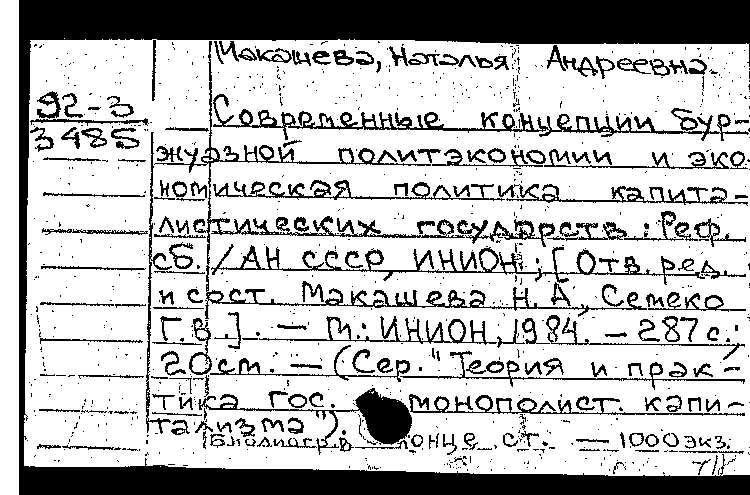 Макашева, Наталья Андреевна.
92-3
3485
Современные концепции бур-
жуазной политэкономии и эко-
номическая политика капита-
листических государств: Реф.
сб. / АН СССР, ИНИОН; [Отв. ред.
и сост. Макашева Н. А., Семеко
Г. В.]. — М.: ИНИОН, 1984. — 287 с.;
20 см. — (Сер. "Теория и прак-
тика гос. монополист. капи-
тализма").
Библиогр. в конце ст. — 1000 экз.